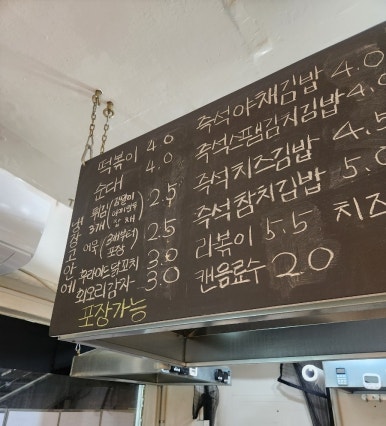 떡볶이 4.0
순대 4.0
튀김 2.5
3개
어묵 (3개부터 포장 2.5
후라이드닭꼬치 3.0
회오리감자 3.0
포장가능
즉석야채김밥 4.0
즉석스팸김치김밥 4.0
즉석치즈김밥 4.5
즉석참치김밥 5.0
리볶이 5.5 치즈
캔음료수 2.0